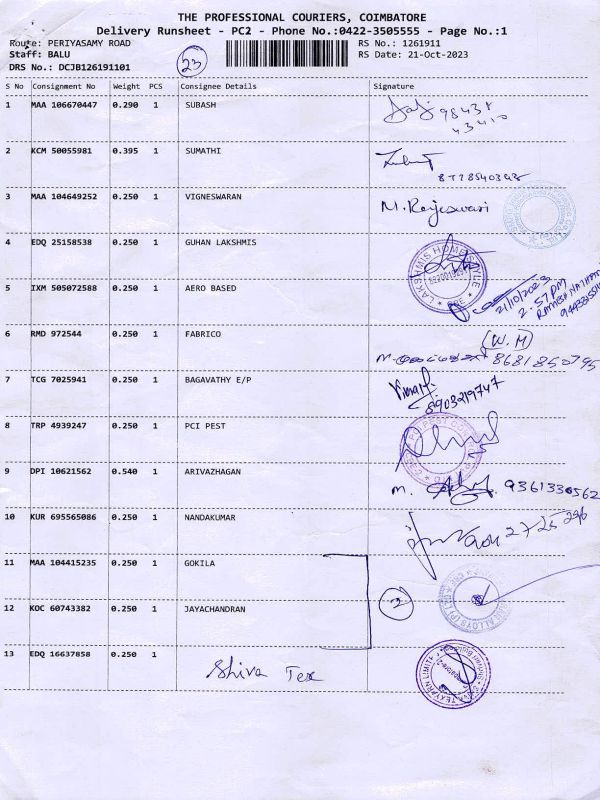 THE PROFESSIONAL COURIERS, COIMBATORE
Delivery Runsheet - PC2 - Phone No.:0422-3505555 - Page No.:1
Route: PERIYASAMY ROAD RS No.: 1261911
Staff: BALU 23 RS Date: 21-Oct-2023
DRS No.: DCJB126191101
S No Consignment No Weight PCS Consignee Details Signature
1 MAA 106670447 0.290 1 SUBASH
2 KCM 50055981 0.395 1 SUMATHI
3 MAA 104649252 0.250 1 VIGNESWARAN M. Rajeswari
4 EDQ 25158538 0.250 1 GUHAN LAKSHMIS
5 IXM 505072588 0.250 1 AERO BASED 21/10/2023
2:57 PM
6 RMD 972544 0.250 1 FABRICO (W.M)
8681850795
7 TCG 7025941 0.250 1 BAGAVATHY E/P
8903219747
8 TRP 4939247 0.250 1 PCI PEST
9 DPI 10621562 0.540 1 ARIVAZHAGAN 9361330562
10 KUR 695565086 0.250 1 NANDAKUMAR
11 MAA 104415235 0.250 1 GOKILA
2
12 KOC 60743382 0.250 1 JAYACHANDRAN
13 EDQ 16637858 0.250 1 Shiva Tex